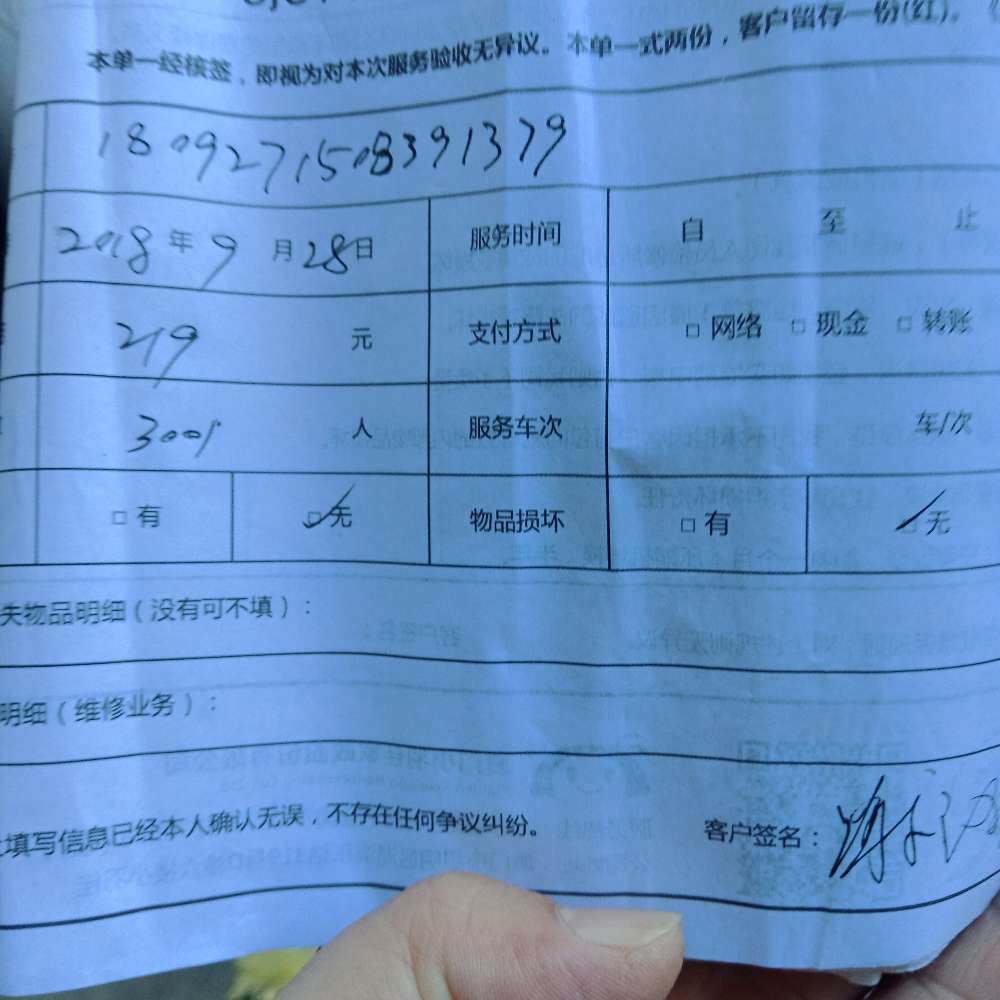 本单一经核签，即视为对本次服务验收无异议。本单一式两份，客户留存一份(红)。
1809271508391379
2018年9月28日 服务时间 自 至 止
219 元 支付方式 □网络 □现金 □转账
3001 人 服务车次 车/次
□有 □无 物品损坏 □有 □无
失物品明细（没有可不填）：
明细（维修业务）：
填写信息已经本人确认无误，不存在任何争议纠纷。 客户签名：